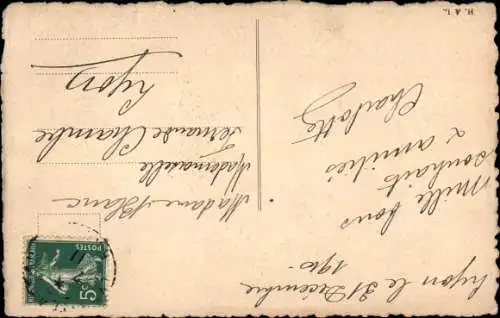 Lyon le 31 Décembre
1910
Mille bons
souhaits
& amitiés
Charlotte
Madame Blanc
Mademoiselle
Fernande Chambre
Lyon
H. & L.
POSTES
5c